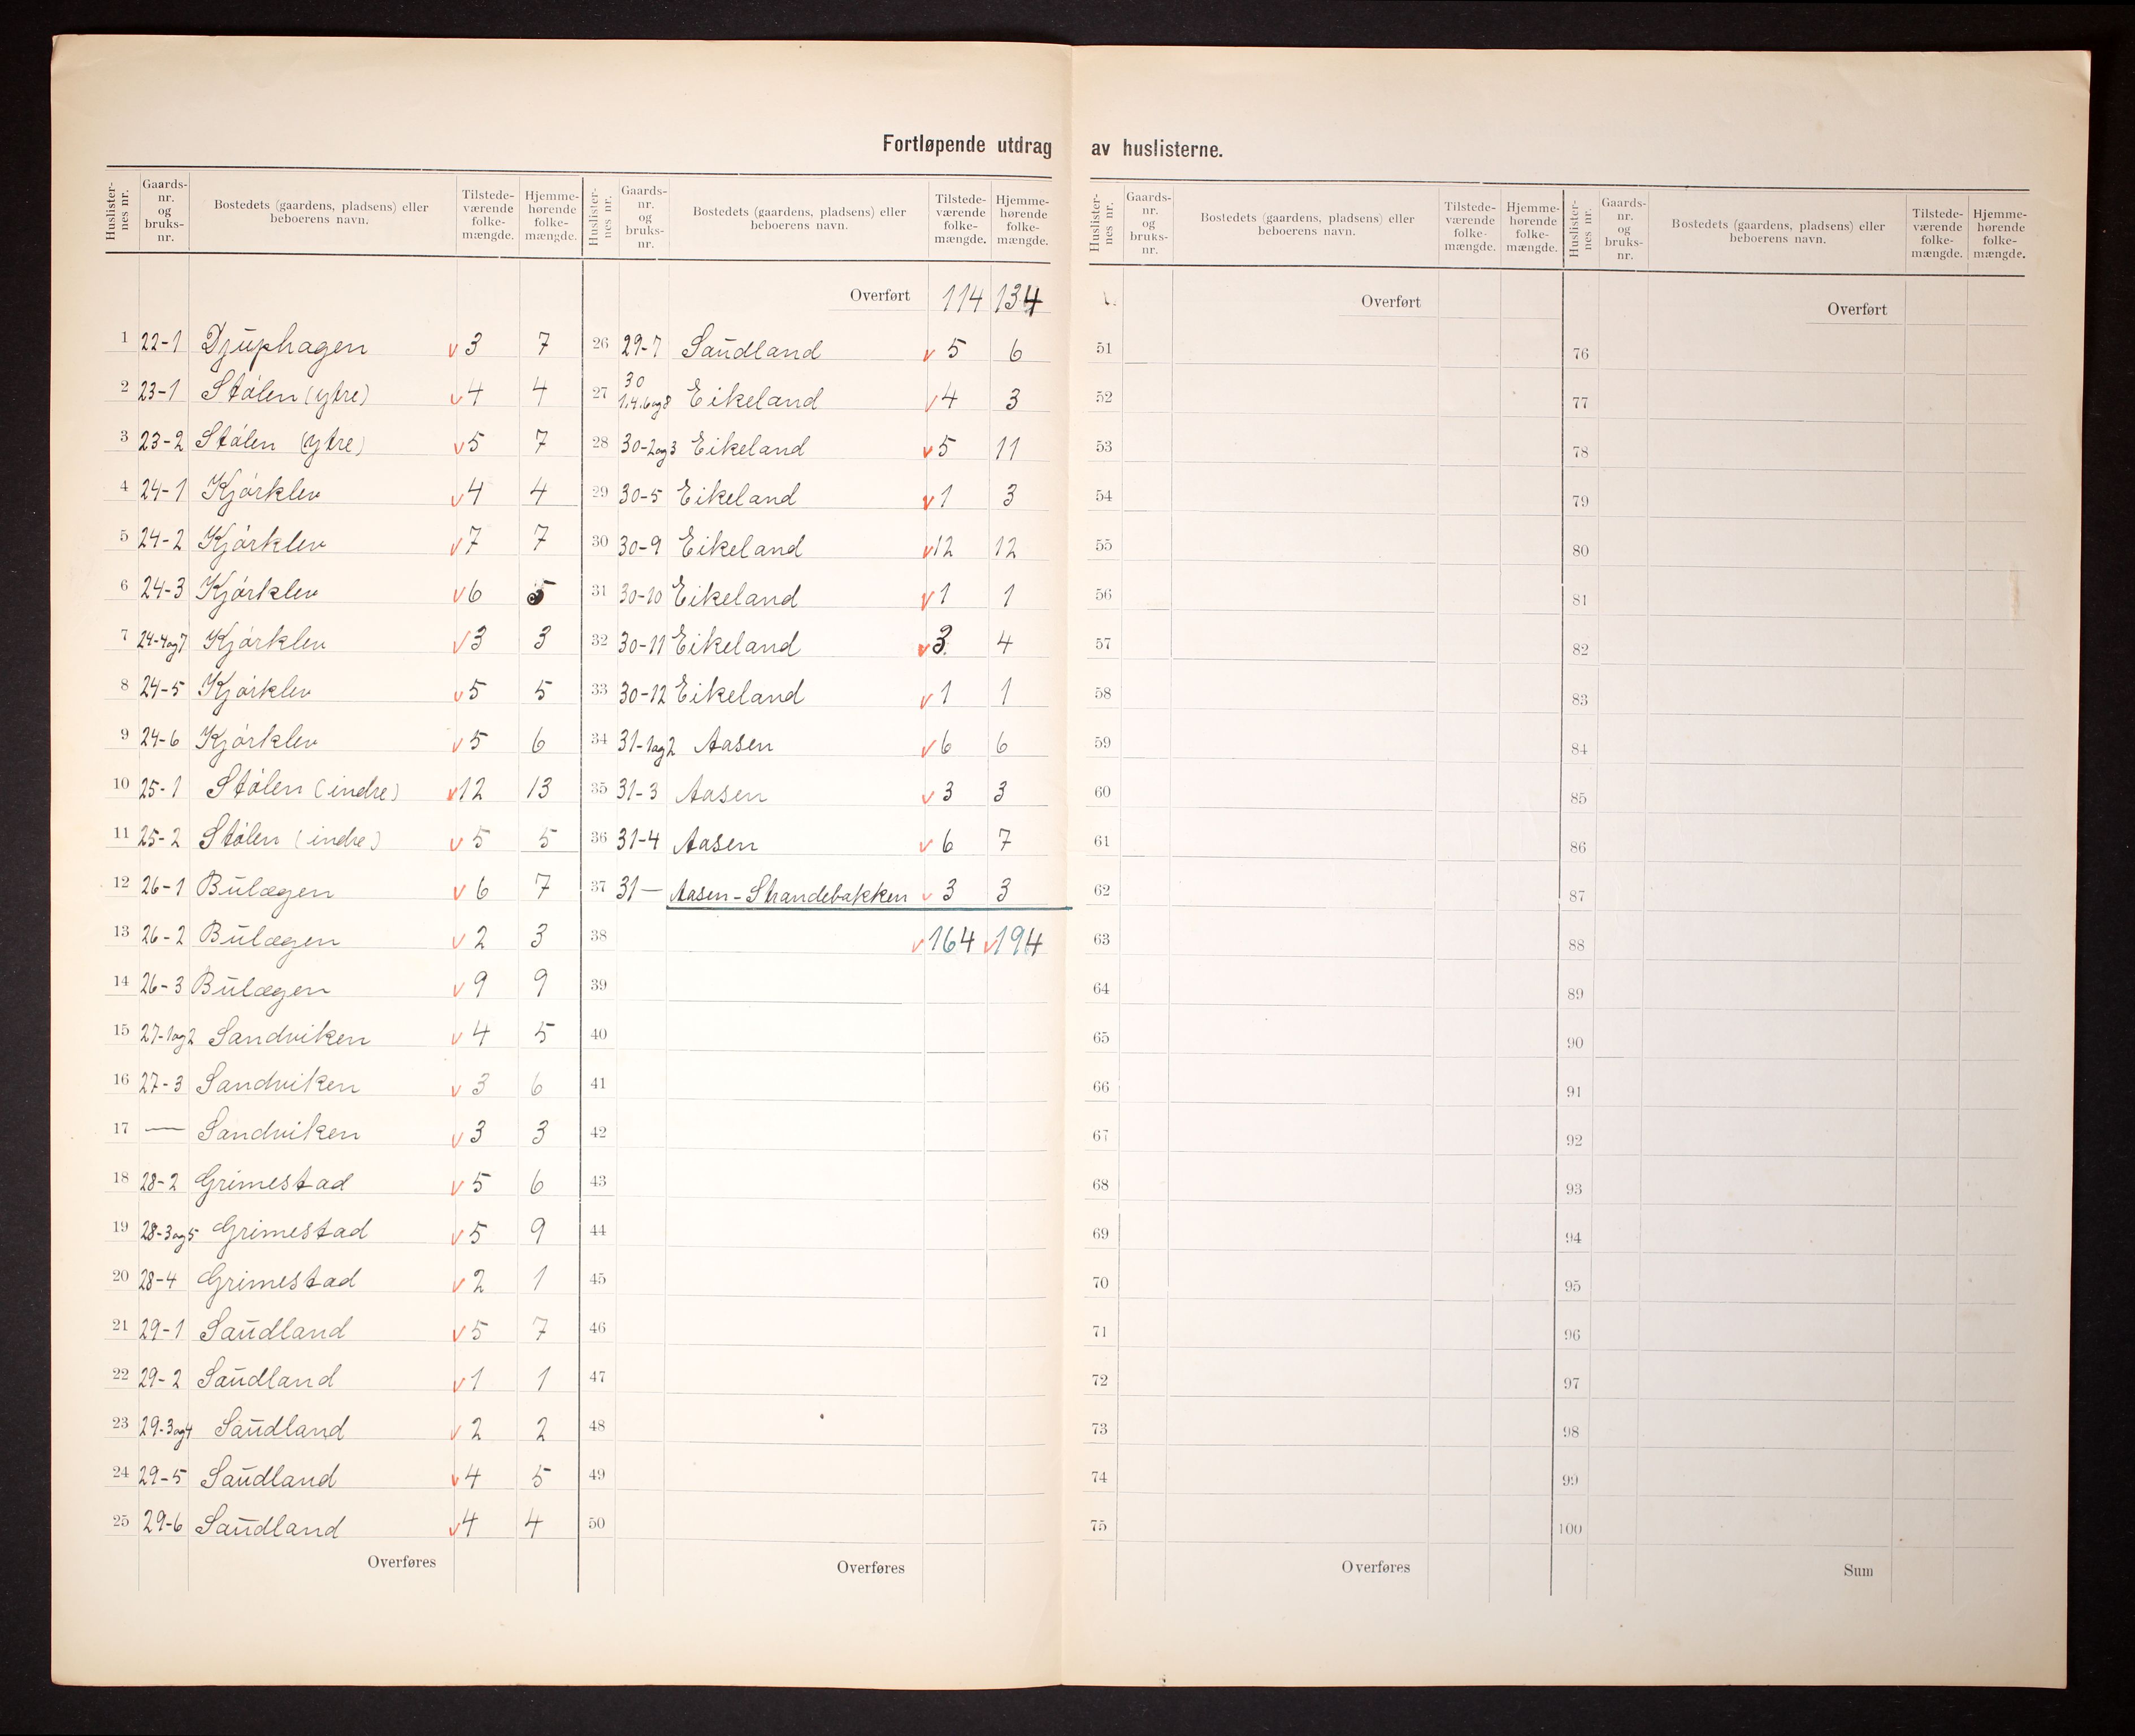 Fortløpende utdrag av huslisterne.
Huslisternes nr. Gaards-nr. og bruks-nr. Bostedets (gaardens, pladsens) eller beboerens navn. Tilstedeværende folkemængde. Hjemmehørende folkemængde.
1 22-1 Djuphagen v 3 7
2 23-1 Stölen (ytre) v 4 4
3 23-2 Stölen (ytre) v 5 7
4 24-1 Kjörklev v 4 4
5 24-2 Kjörklev v 7 7
6 24-3 Kjörklev v 6 5
7 24-4og7 Kjörklev v 3 3
8 24-5 Kjörklev v 5 5
9 24-6 Kjörklev v 5 6
10 25-1 Stölen (indre) v 12 13
11 25-2 Stölen (indre) v 5 5
12 26-1 Bulægen v 6 7
13 26-2 Bulægen v 2 3
14 26-3 Bulægen v 9 9
15 27-1og2 Sandviken v 4 5
16 27-3 Sandviken v 3 6
17 — Sandviken v 3 3
18 28-2 Grimestad v 5 6
19 28-3og5 Grimestad v 5 9
20 28-4 Grimestad v 2 1
21 29-1 Saudland v 5 7
22 29-2 Saudland v 1 1
23 29-3og4 Saudland v 2 2
24 29-5 Saudland v 4 5
25 29-6 Saudland v 4 4
Overføres
Huslisternes nr. Gaards-nr. og bruks-nr. Bostedets (gaardens, pladsens) eller beboerens navn. Tilstedeværende folkemængde. Hjemmehørende folkemængde.
Overført 114 134
26 29-7 Saudland v 5 6
27 30 1.4.6og8 Eikeland v 4 3
28 30-2og3 Eikeland v 5 11
29 30-5 Eikeland v 1 3
30 30-9 Eikeland v 12 12
31 30-10 Eikeland v 1 1
32 30-11 Eikeland v 3 4
33 30-12 Eikeland v 1 1
34 31-1og2 Aasen v 6 6
35 31-3 Aasen v 3 3
36 31-4 Aasen v 6 7
37 31 — Aasen-Strandebakken v 3 3
38 v 164 v 194
39
40
41
42
43
44
45
46
47
48
49
50
Overføres
Huslisternes nr. Gaards-nr. og bruks-nr. Bostedets (gaardens, pladsens) eller beboerens navn. Tilstedeværende folkemængde. Hjemmehørende folkemængde.
Overført
51
52
53
54
55
56
57
58
59
60
61
62
63
64
65
66
67
68
69
70
71
72
73
74
75
Overføres
Huslisternes nr. Gaards-nr. og bruks-nr. Bostedets (gaardens, pladsens) eller beboerens navn. Tilstedeværende folkemængde. Hjemmehørende folkemængde.
Overført
76
77
78
79
80
81
82
83
84
85
86
87
88
89
90
91
92
93
94
95
96
97
98
99
100
Sum